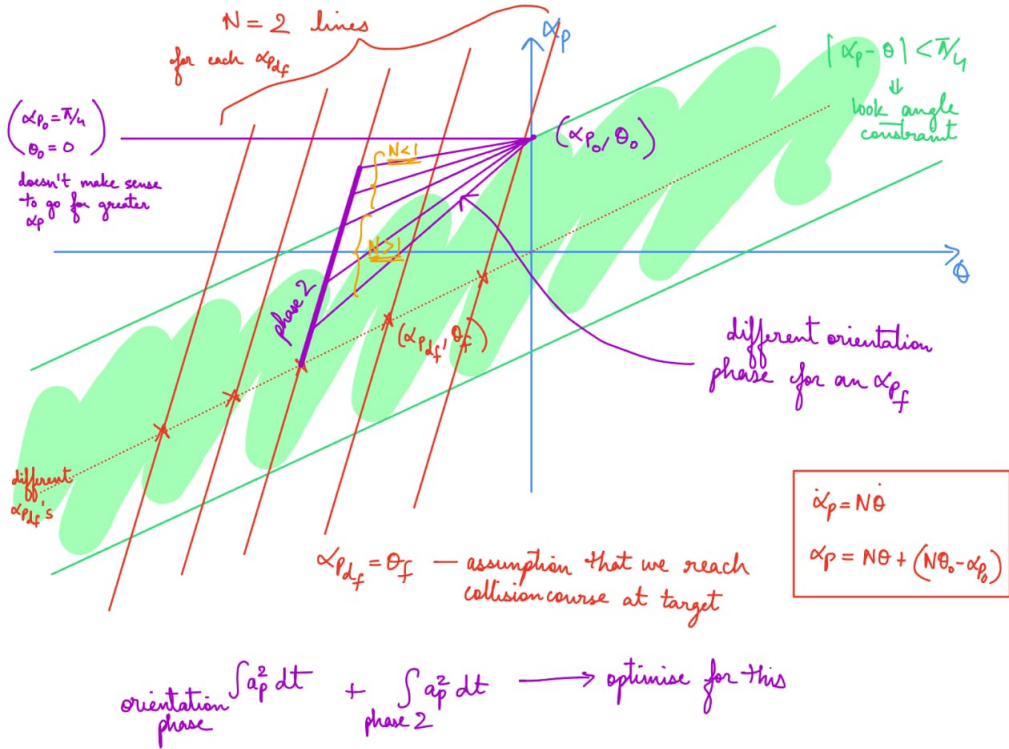 N = 2 lines
for each αp_df
αp
|αp - θ| < π/4
⇓
look angle
constraint
(αp₀ = π/4
θ₀ = 0)
doesn't make sense
to go for greater
αp
(αp₀, θ₀)
N<1
N>1
θ
phase 2
(αp_df, θf)
different orientation
phase for an αp_f
different
αp_df's
α̇p = Nθ̇
αp = Nθ + (Nθ₀ - αp₀)
αp_df = θf — assumption that we reach
collision course at target
∫ap² dt + ∫ap² dt ⟶ optimise for this
orientation
phase
phase 2